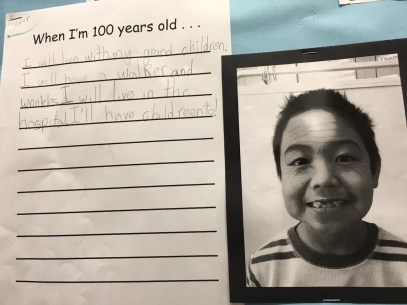 When I'm 100 years old . . .
I will live with my grand children.
I will have a walker and
I will live in the
hospital I'll have children to!